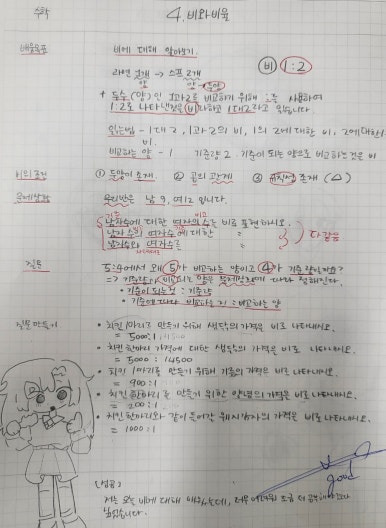 수학
4. 비와비율
배울목표
비에 대해 알아보기.
라면 1개 → 스프 2개
양 양 두양
비 1:2
* 두수(양)인 1과2를 비교하기 위해 :를 사용하여
1:2로 나타낸것을 비라하고 1대2라고 읽습니다
읽는방법 - 1대2, 1과2의 비, 1의 2에 대한 비, 2에대한1
비.
비교하는 양 - 1 기준량 2. 기준이 되는 양으로 비교하는 것은 비
비의 조건
① 두양이 존재. ② 곱의 관계 ③ 규칙성 존재 (△)
문제상황
우리반은 남 9, 여 12 입니다.
남자수에 대한 여자의수는 비로 표현하시오.
남자수와 여자수에 대한 〃
남자수와 여자수를 〃
다같음
질문
5:4에서 왜 5가 비교하는 양이고 4가 기준량일까요?
=> 기준량과 비교하는 양은 문제상황에 따라 정해진다.
• 기준이 되는 것 : 기준량
• 기준에 따라 비교하는 것 : 비교하는 양
질문 만들기
• 치킨 1마리를 만들기 위해 생닭의 가격을 비로 나타내시오.
= 5000:1
• 치킨 한마리 가격에 대한 생닭의 가격을 비로 나타내시오.
= 5000 : 14500
• 치킨 1마리를 만들기 위해 기름의 가격을 비로 나타내시오.
= 900:1
• 치킨 한마리를 만들기 위한 양념의 가격을 비로 나타내시오.
= 200:1
• 치킨 한마리와 같이 들어간 웨지감자의 가격을 비로 나타내시오.
= 1000:1
good
저는 오늘 비에 대해 배웠는데,